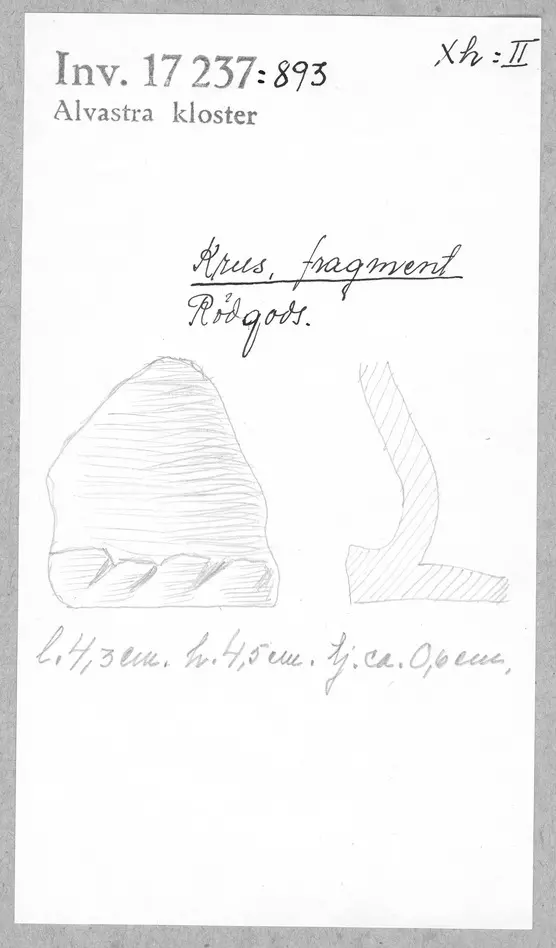 Xh:II
Inv. 17 237:893
Alvastra kloster
Krus, fragment
Rödgods.
l. 4,3 cm. h. 4,5 cm. tj. ca. 0,6 cm.